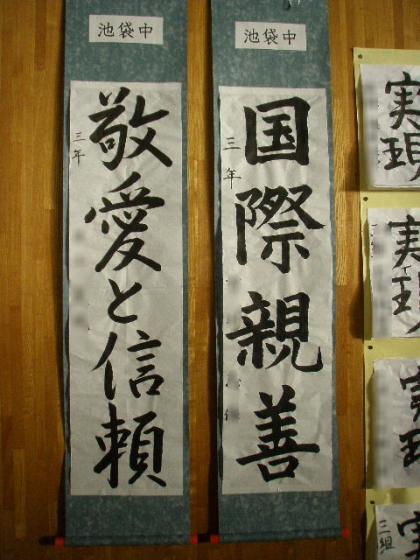 池袋中
国際親善
三年
池袋中
敬愛と信頼
三年
実現
実現
実現
三組
実